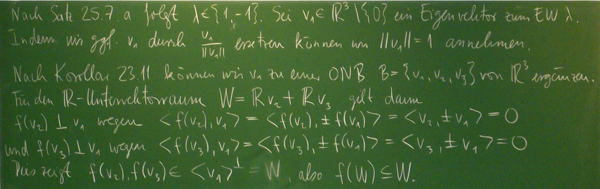 Nach Satz 25.7.a folgt λ∈{1,-1}. Sei v₁∈ℝ³\{0} ein Eigenvektor zum EW λ.
Indem wir ggf. v₁ durch v₁/‖v₁‖ ersetzen können wir ‖v₁‖=1 annehmen.
Nach Korollar 23.11 können wir v₁ zu einer ONB B={v₁,v₂,v₃} von ℝ³ ergänzen.
Für den ℝ-Untervektorraum W=ℝv₂+ℝv₃ gilt dann
f(v₂)⊥v₁ wegen <f(v₂),v₁>=<f(v₂),±f(v₁)>=<v₂,±v₁>=0
und f(v₃)⊥v₁ wegen <f(v₃),v₁>=<f(v₃),±f(v₁)>=<v₃,±v₁>=0
Dies zeigt f(v₂),f(v₃)∈<v₁>^⊥=W, also f(W)⊆W.